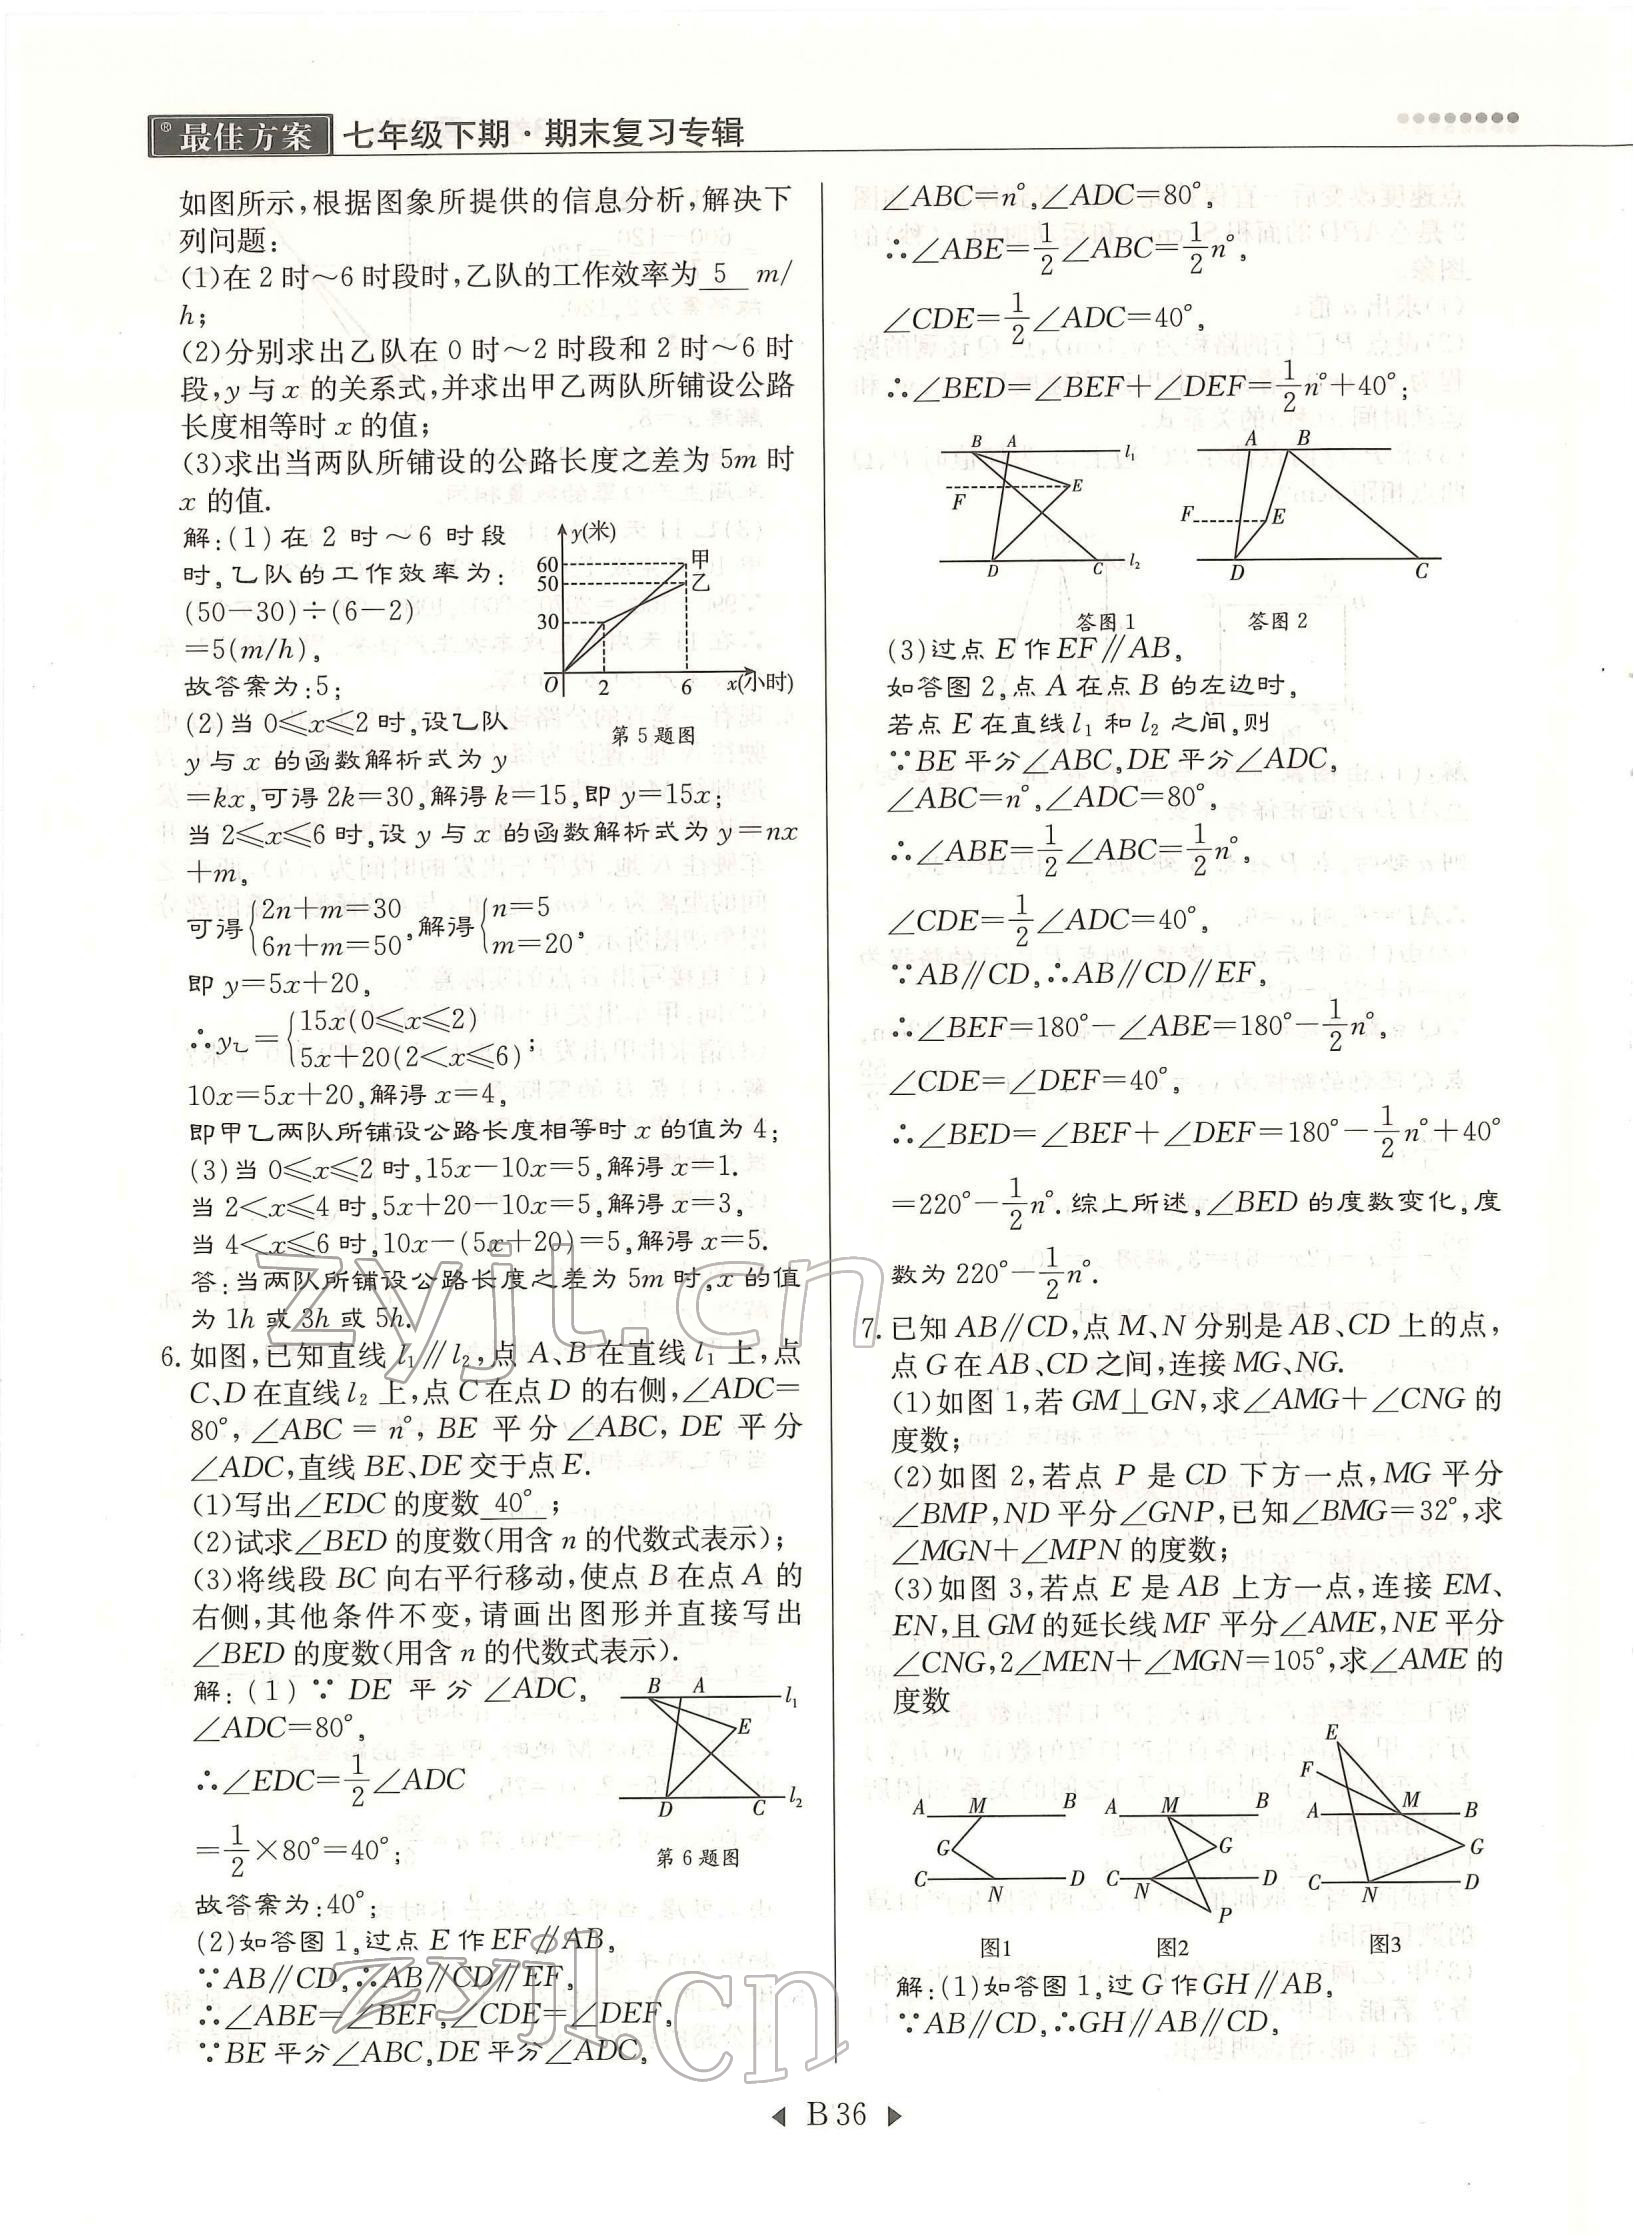 最佳方案® 七年级下期·期末复习专辑
如图所示,根据图象所提供的信息分析,解决下
列问题:
(1)在 2 时～6 时段时,乙队的工作效率为 5 m/
h;
(2)分别求出乙队在 0 时～2 时段和 2 时～6 时
段,y 与 x 的关系式,并求出甲乙两队所铺设公路
长度相等时 x 的值;
(3)求出当两队所铺设的公路长度之差为 5m 时
x 的值.
解:(1)在 2 时～6 时段
时,乙队的工作效率为:
(50－30)÷(6－2)
＝5(m/h),
故答案为:5;
(2)当 0≤x≤2 时,设乙队
y 与 x 的函数解析式为 y
y(米)
60
50
30
甲
乙
O 2 6 x(小时)
第 5 题图
＝kx,可得 2k＝30,解得 k＝15,即 y＝15x;
当 2≤x≤6 时,设 y 与 x 的函数解析式为 y＝nx
＋m,
可得{2n＋m＝30 6n＋m＝50,解得{n＝5 m＝20,
即 y＝5x＋20,
∴y乙＝{15x(0≤x≤2) 5x＋20(2＜x≤6);
10x＝5x＋20,解得 x＝4,
即甲乙两队所铺设公路长度相等时 x 的值为 4;
(3)当 0≤x≤2 时,15x－10x＝5,解得 x＝1.
当 2＜x≤4 时,5x＋20－10x＝5,解得 x＝3,
当 4＜x≤6 时,10x－(5x＋20)＝5,解得 x＝5.
答:当两队所铺设公路长度之差为 5m 时,x 的值
为 1h 或 3h 或 5h.
6. 如图,已知直线 l₁∥l₂,点 A、B 在直线 l₁ 上,点
C、D 在直线 l₂ 上,点 C 在点 D 的右侧,∠ADC＝
80°,∠ABC＝n°,BE 平分∠ABC,DE 平分
∠ADC,直线 BE、DE 交于点 E.
(1)写出∠EDC 的度数 40° ;
(2)试求∠BED 的度数(用含 n 的代数式表示);
(3)将线段 BC 向右平行移动,使点 B 在点 A 的
右侧,其他条件不变,请画出图形并直接写出
∠BED 的度数(用含 n 的代数式表示).
解:(1)∵DE 平分∠ADC,
∠ADC＝80°,
∴∠EDC＝1/2∠ADC
＝1/2×80°＝40°;
B A l₁
E
D C l₂
第 6 题图
故答案为:40°;
(2)如答图 1,过点 E 作 EF∥AB,
∵AB∥CD,∴AB∥CD∥EF,
∴∠ABE＝∠BEF,∠CDE＝∠DEF,
∵BE 平分∠ABC,DE 平分∠ADC,
∠ABC＝n°,∠ADC＝80°,
∴∠ABE＝1/2∠ABC＝1/2n°,
∠CDE＝1/2∠ADC＝40°,
∴∠BED＝∠BEF＋∠DEF＝1/2n°＋40°;
B A l₁
F E
D C l₂
答图 1
A B
F E
D C
答图 2
(3)过点 E 作 EF∥AB,
如答图 2,点 A 在点 B 的左边时,
若点 E 在直线 l₁ 和 l₂ 之间,则
∵BE 平分∠ABC,DE 平分∠ADC,
∠ABC＝n°,∠ADC＝80°,
∴∠ABE＝1/2∠ABC＝1/2n°,
∠CDE＝1/2∠ADC＝40°,
∵AB∥CD,∴AB∥CD∥EF,
∴∠BEF＝180°－∠ABE＝180°－1/2n°,
∠CDE＝∠DEF＝40°,
∴∠BED＝∠BEF＋∠DEF＝180°－1/2n°＋40°
＝220°－1/2n°.综上所述,∠BED 的度数变化,度
数为 220°－1/2n°.
7. 已知 AB∥CD,点 M、N 分别是 AB、CD 上的点,
点 G 在 AB、CD 之间,连接 MG、NG.
(1)如图 1,若 GM⊥GN,求∠AMG＋∠CNG 的
度数;
(2)如图 2,若点 P 是 CD 下方一点,MG 平分
∠BMP,ND 平分∠GNP,已知∠BMG＝32°,求
∠MGN＋∠MPN 的度数;
(3)如图 3,若点 E 是 AB 上方一点,连接 EM、
EN,且 GM 的延长线 MF 平分∠AME,NE 平分
∠CNG,2∠MEN＋∠MGN＝105°,求∠AME 的
度数
A M B
G
C N D
图1
A M B
G
C N D
P
图2
E
F
A M B
G
C N D
图3
解:(1)如答图 1,过 G 作 GH∥AB,
∵AB∥CD,∴GH∥AB∥CD,
zyjl.cn
zyjl.cn
B 36